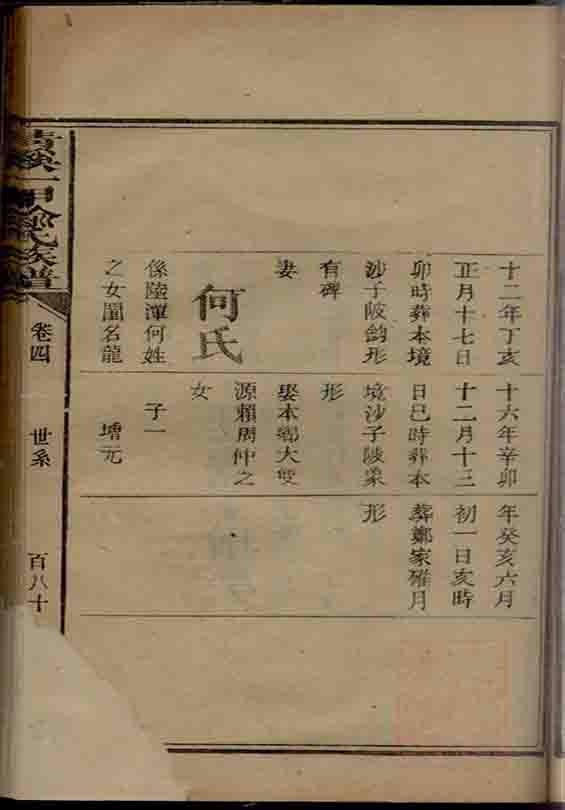 十二年丁亥
正月十七日
卯時葬本境
沙子陂鈎形
有碑
妻
何氏
係陸潭何姓
之女閨名龍
十六年辛卯
十二月十三
日巳時葬本
境沙子陂象
形
娶本鄉大雙
源賴周仲之
女
子一
元
年癸亥六月
初一日亥時
葬鄭家月
形
一甲氏族譜
卷四
世系
百八十